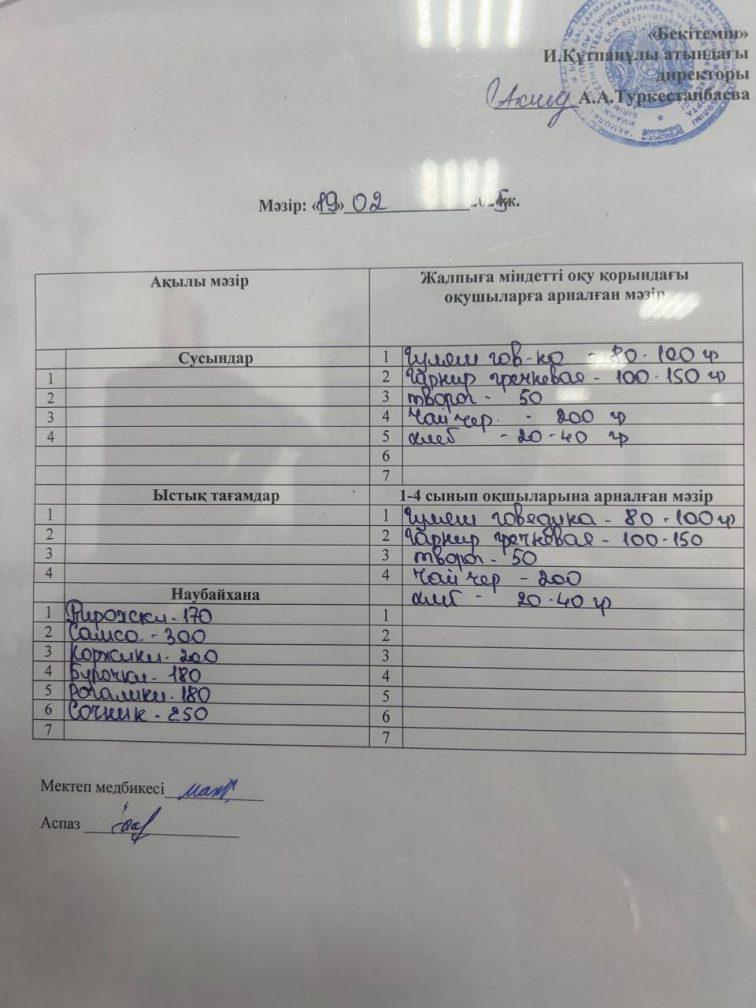 «Бекітемін»
И.Құтпанұлы атындағы
директоры
А.А.Туркестанбаева
Мәзір: «19» 02 2025ж.
Ақылы мәзір
Жалпыға міндетті оқу қорындағы
оқушыларға арналған мәзір
Сусындар
1 Гуляш гов-ка - 80-100 гр
1
2 Гарнир гречневая - 100-150 гр
2
3 творог - 50
3
4 Чай чер. - 200 гр
4
5 хлеб - 20-40 гр
6
7
Ыстық тағамдар
1-4 сынып оқшыларына арналған мәзір
1
1 Гуляш говядина - 80-100 гр
2
2 Гарнир гречневая - 100-150
3
3 творог - 50
4
4 Чай чер - 200
Наубайхана
хлеб - 20-40 гр
1 Пирожки - 170
1
2 Самса - 300
2
3 Коржики - 200
3
4 Булочки - 180
4
5 Рогалики - 180
5
6 Сочник - 250
6
7
7
Мектеп медбикесі
Аспаз